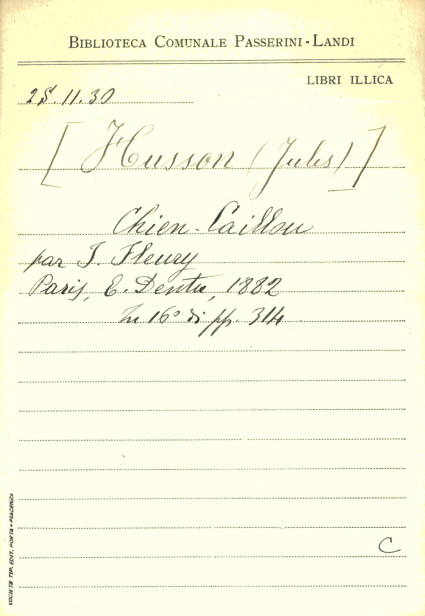 BIBLIOTECA COMUNALE PASSERINI-LANDI
LIBRI ILLICA
2S.11.30
[Husson (Jules)]
Chien-Caillou
par J. Fleury
Paris, E. Dentu, 1882
In 16° di pp. 314
C
SOCIETÀ TIP. EDIT. PORTA - PIACENZA